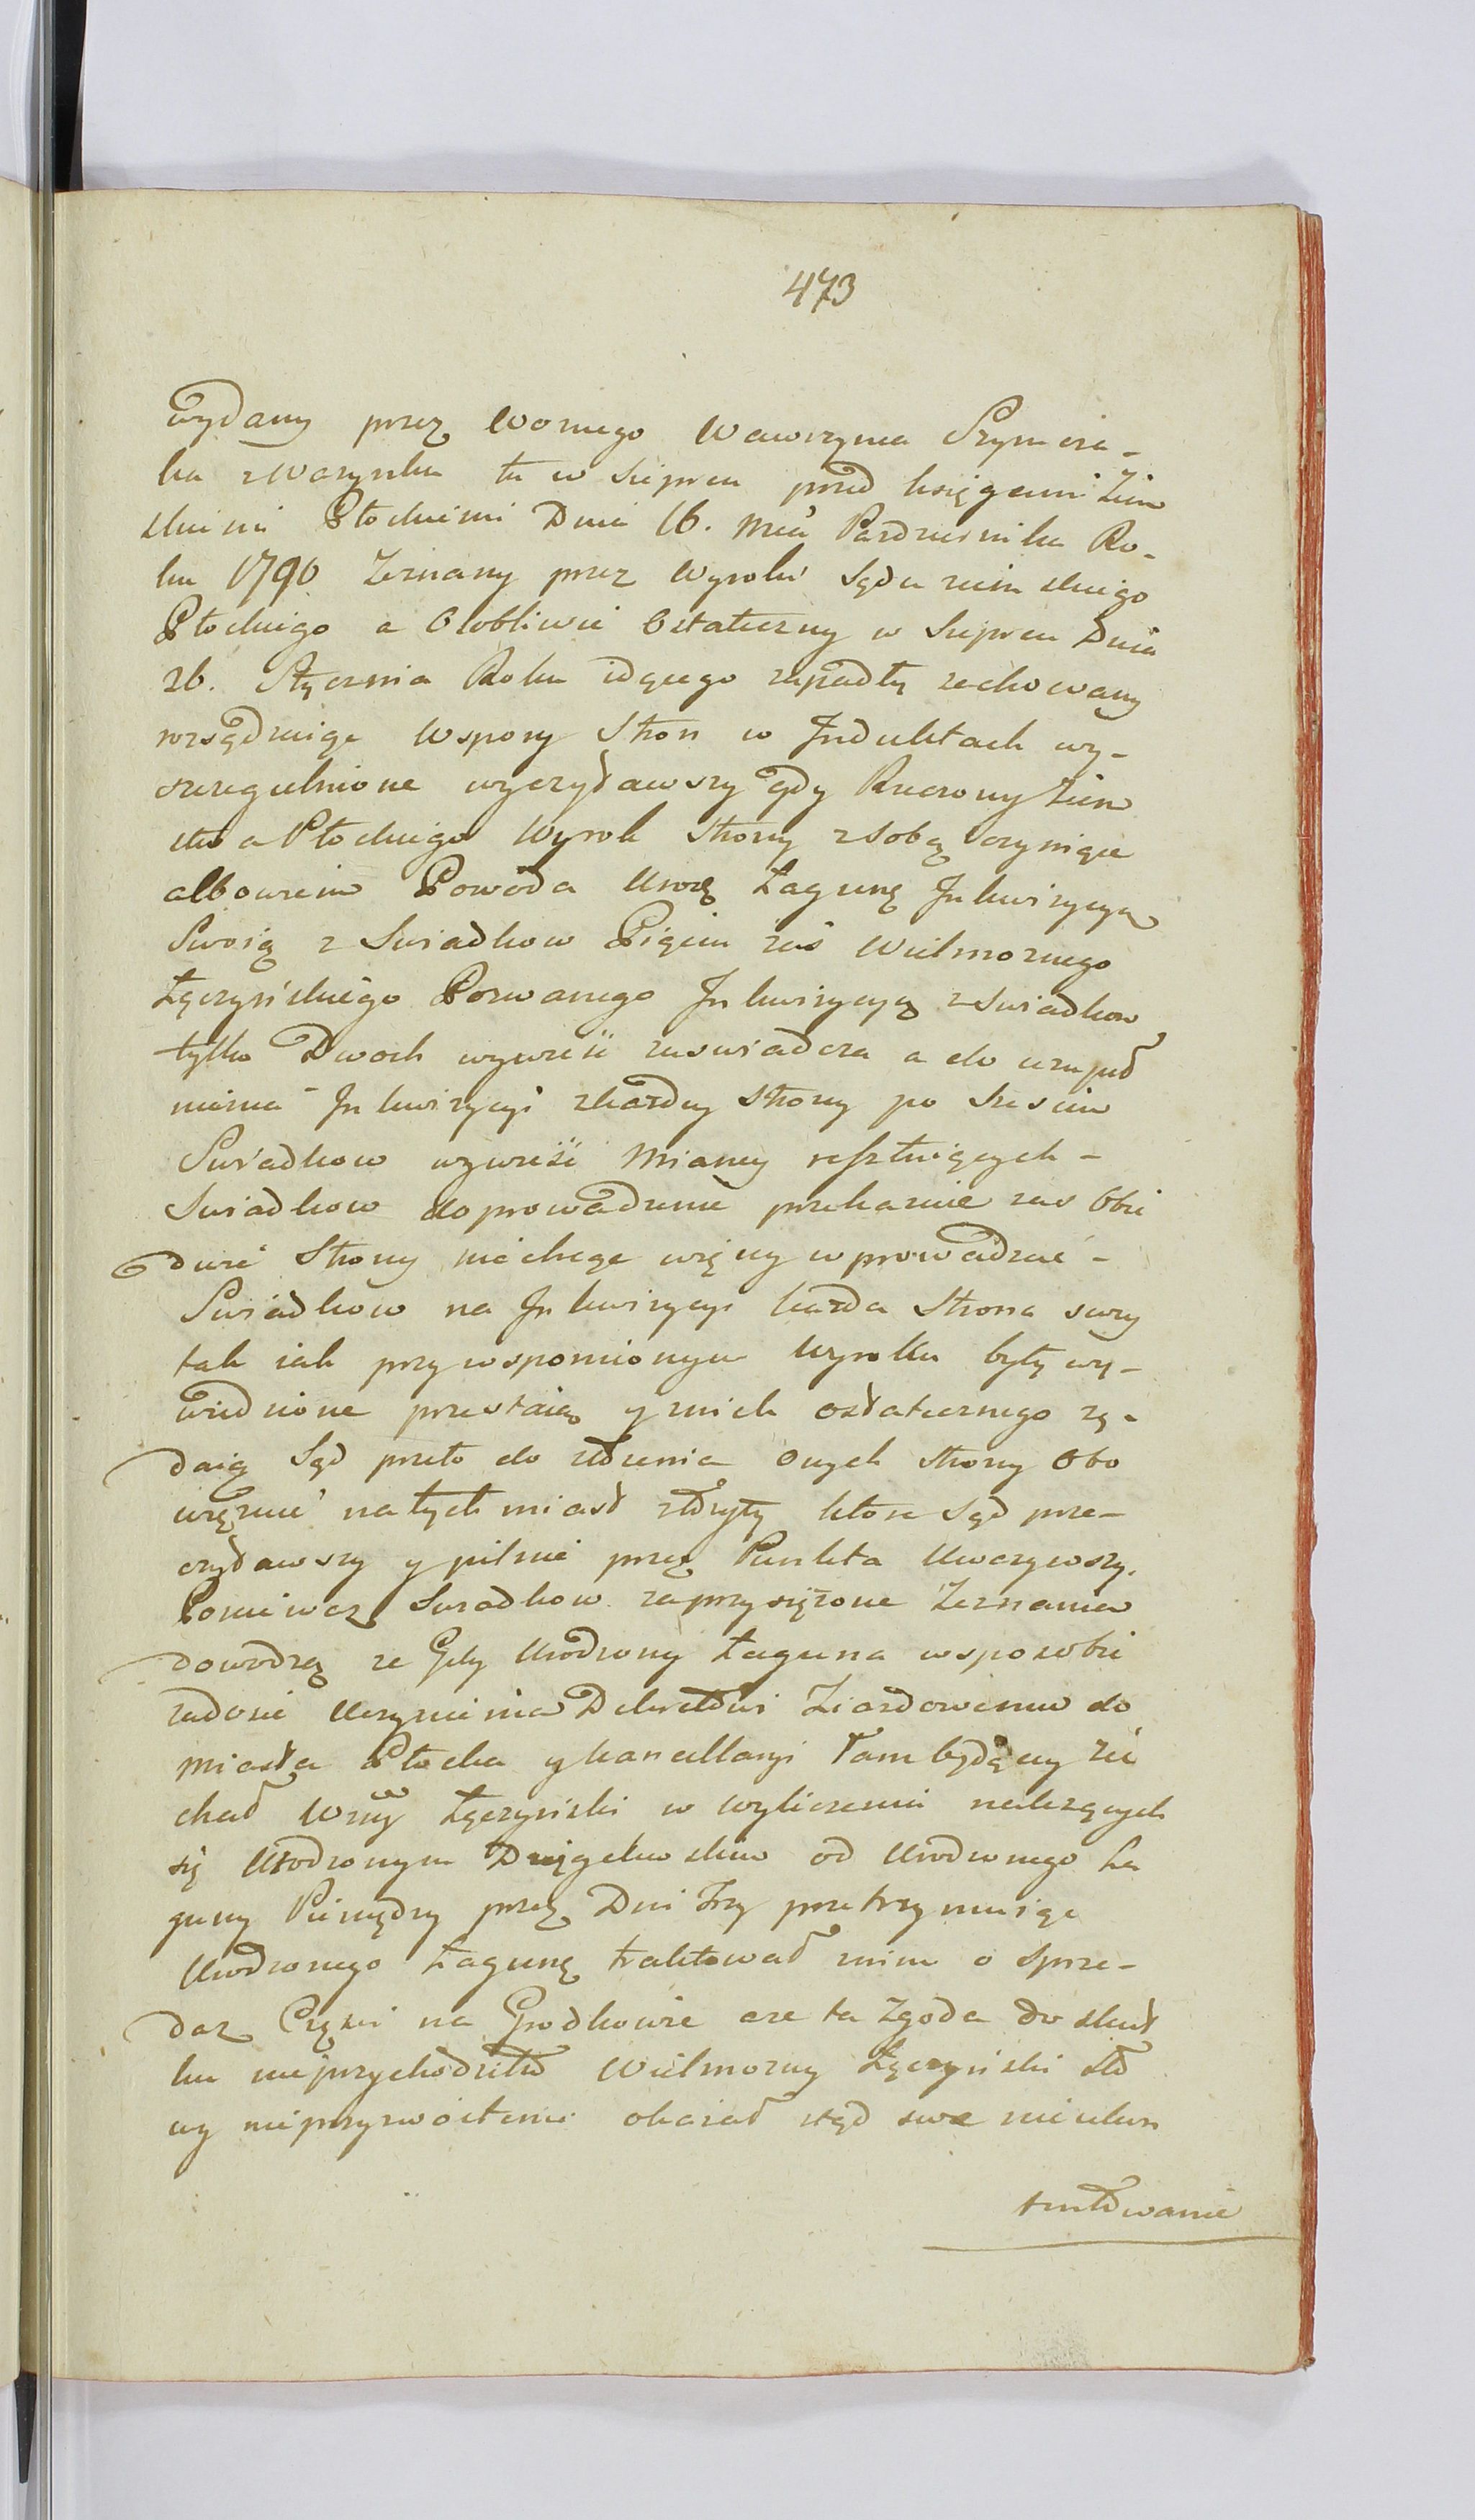 473
wydany przez Woznego Wawrzynca Szymcza-
ka z Wazynka tu w Sieprcu przed księgami Ziem
skiemi Płockiemi Dnia 16. Mca Pazdziernika Ro-
ku 1790 Zeznany przez Wyroki Sądu ziemskiego
Płockiego a Osobliwie Ostateczny w Sieprcu Dnia
26. Stycznia Roku idącego zapadły zachowany
rozsądzaiąc Wspory Stron w Induktach wy-
szczegulnione wyczytawszy gdy Rzeczony Ziem
stwa Płockiego Wyrok Strony z sobą czyniące
albowiem Powoda Urodz Łagunę Inkwizycyą
Swoią z Swiadkow Pięciu zaś Wielmoznego
Łączyńskiego Pozwanego Inkwizycyą z Swiadkow
tylko Dwoch wywieść zaswiadcza a do uzupeł
nienia Inkwizycyi z kazdey Strony po Szesciu
Swiadkow wywieść Mianey resztuiących -
Swiadkow doprowadzenie przekazuie zas Obie
dwie Strony niechcąc więcey wprowadzać -
Swiadkow na Inkwizycyi kazda Strona swey
tak iak przy wspomionym Wyroku były wy-
wiedzione przestaią y z nich ostatecznego zą-
daią Sąd przeto do złozenia Onych Strony Obo
wiązuie natychmiast złozyły ktore Sąd prze-
czytawszy y pilnie przez Punkta Uwazywszy,
Poniewaz Swiadkow zaprzysięzone Zeznania
dowodzą ze Gdy Urodzony Łaguna wsposobie
zadosic Uczynienia Dekretowi Ziazdowemu do
Miasta Płocka y kancellaryi Tam będącey Zie
chał Wny Łączynski w wyliczeniu nalezących
się Urodzonym Drągekwskim od Urodzonego Ła
guny Pieniędzy przez Dni Trzy przetrzymuiąc
Urodzonego Łagunę traktował z nim o Sprze-
daz Części na Grodkowie aze ta Zgoda do skut
ku nieprzychodziło Wielmozny Łączynski sło
wy nieprzyzwoitemi okazał stąd swe nieukon
tentowanie